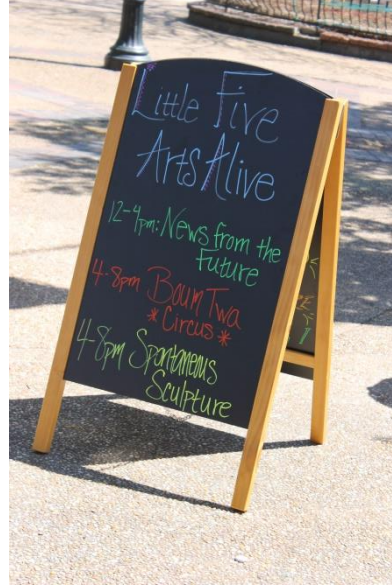 Little Five
Arts Alive
12-4pm: News from the
Future
4-8pm Boum Twa
* Circus *
4-8pm Spontaneous
Sculpture